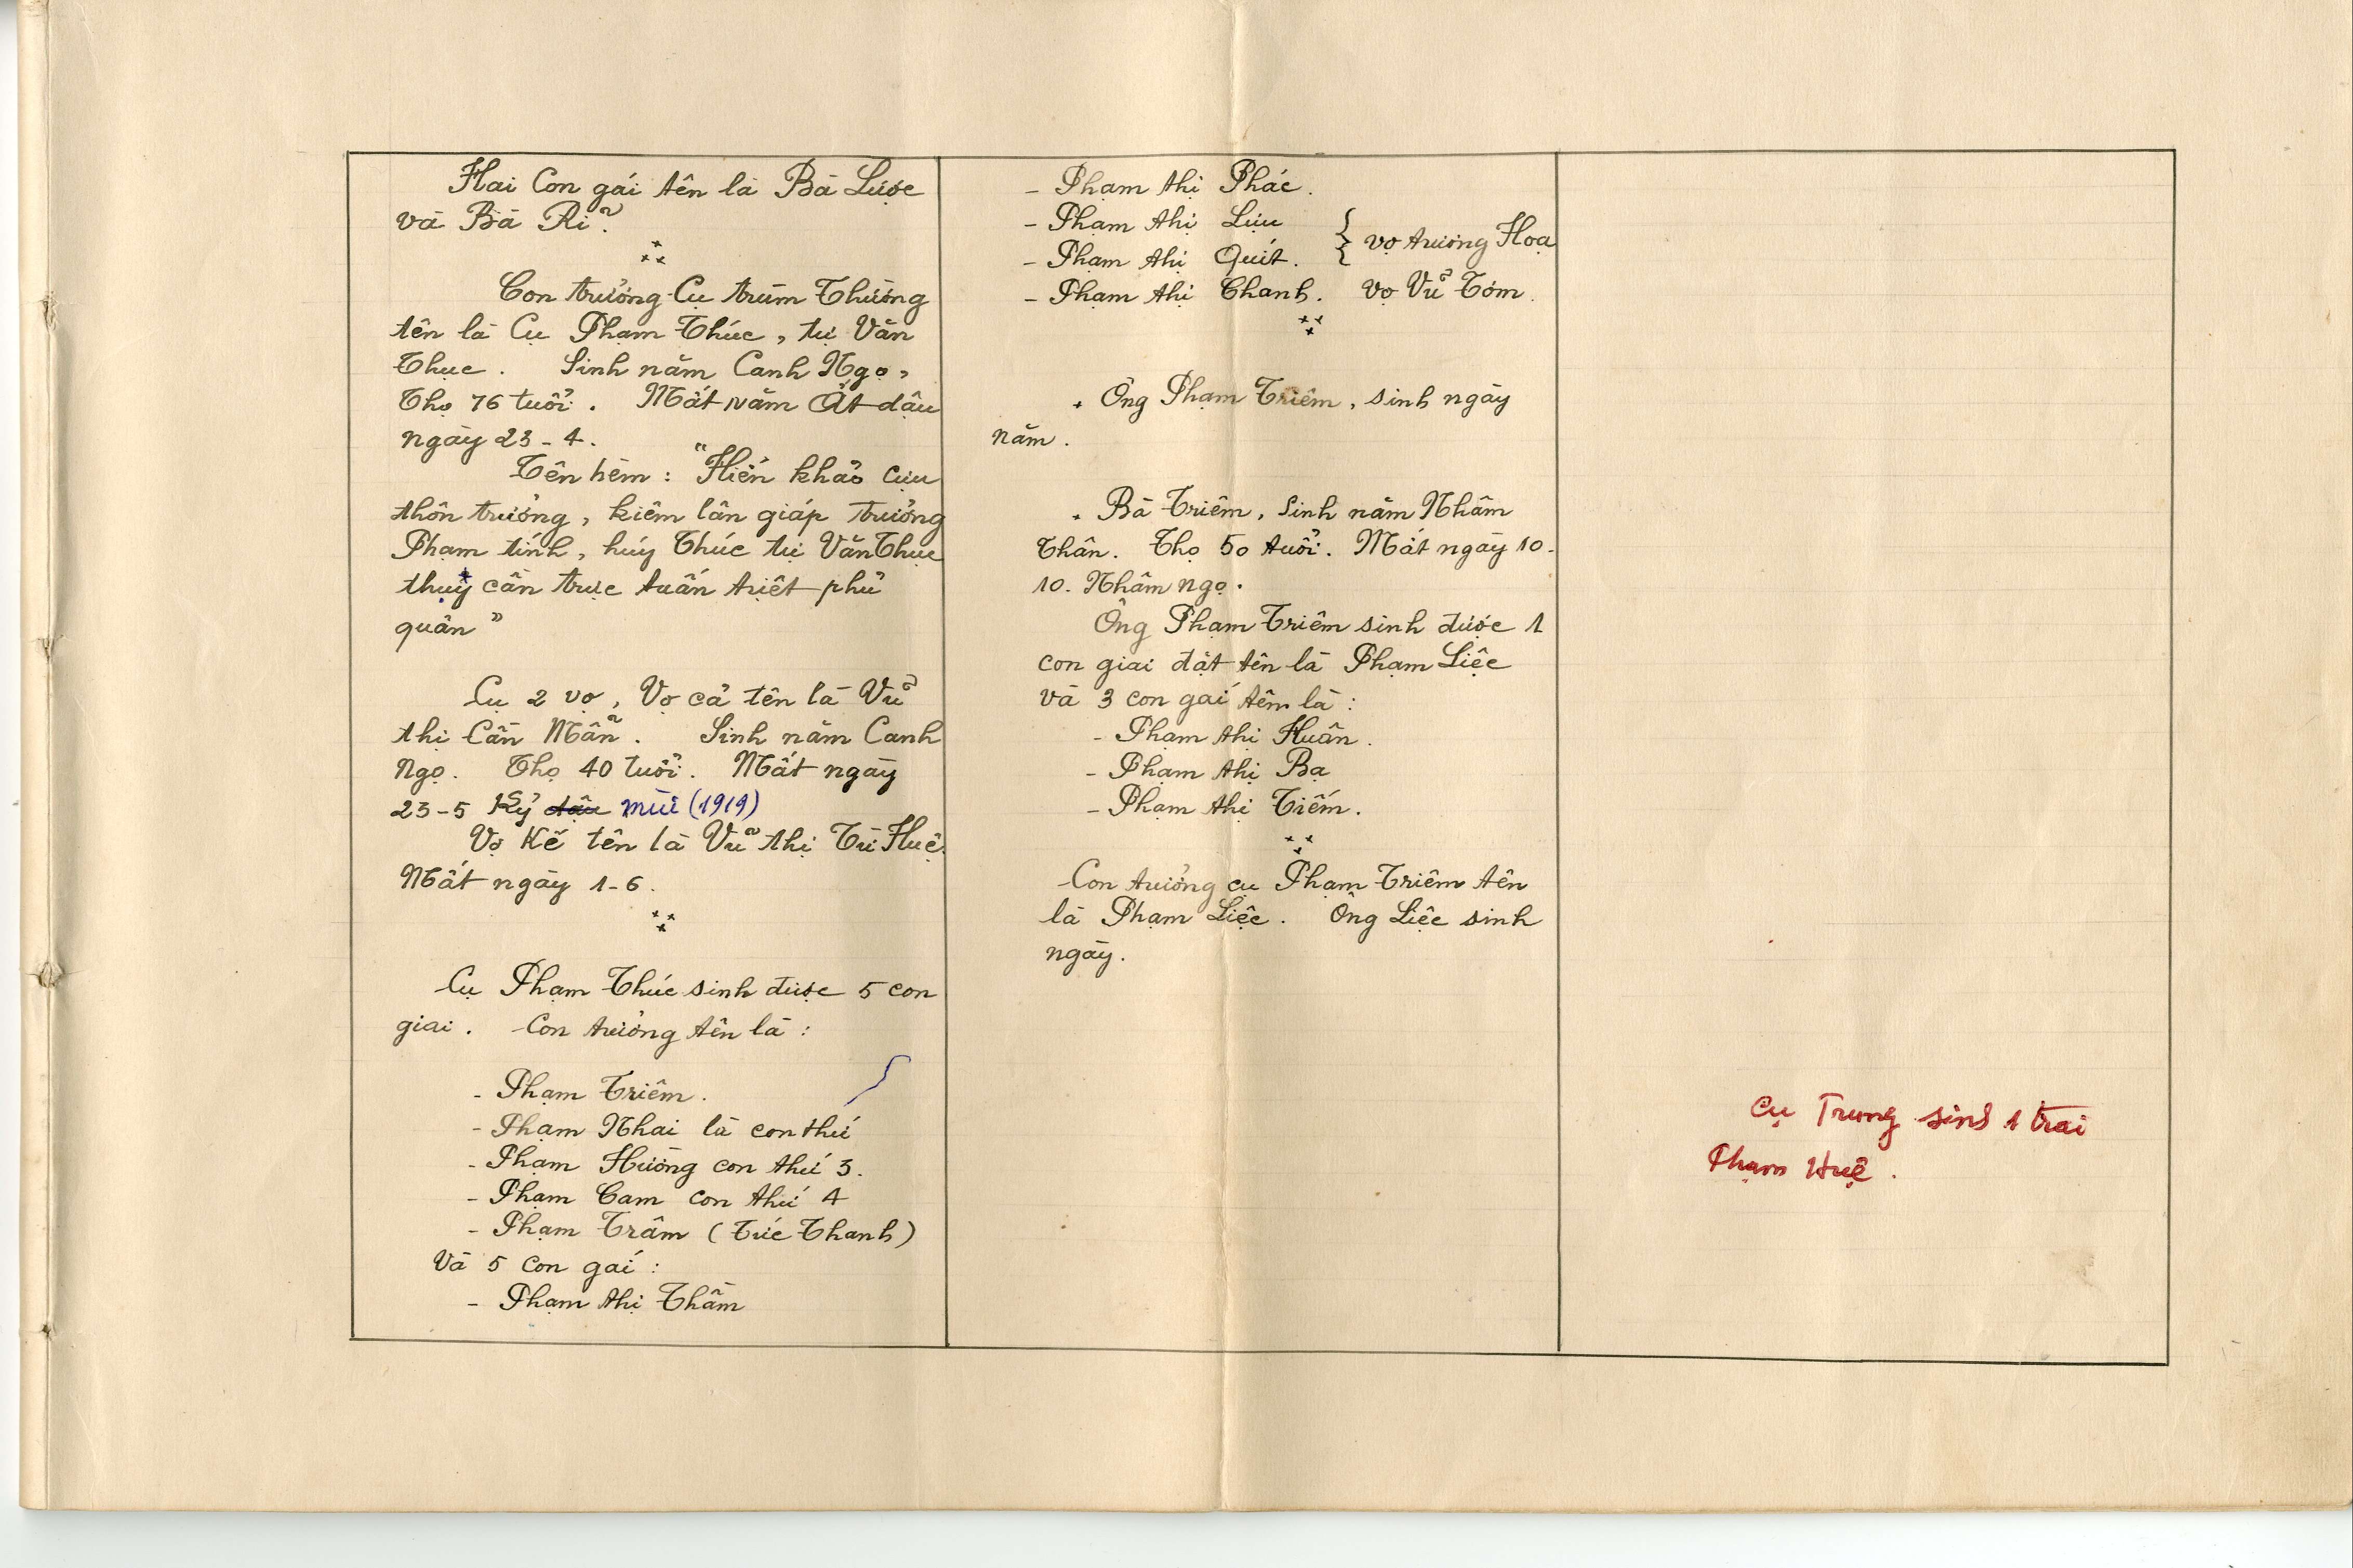 Hai Con gái tên là Bà Lược
và Bà Rĩ.
Con trưởng Cụ trùm Thường
tên là Cụ Phạm Thúc, tự Văn
Thục. Sinh năm Canh Ngọ,
Thọ 76 tuổi. Mất năm Ất dậu
ngày 23-4.
Tên hèm : "Hiển khảo cựu
thôn trưởng, kiêm lân giáp trưởng
Phạm tính, húy Thúc tự Văn Thục
thụy cần trực tuấn triết phủ
quân"
Cụ 2 vợ, Vợ cả tên là Vũ
thị Cần Mẫn. Sinh năm Canh
Ngọ. Thọ 40 tuổi. Mất ngày
23-5 Kỷ dậu mùi (1919)
Vợ Kế tên là Vũ thị Từ Huệ.
Mất ngày 1-6.
Cụ Phạm Thúc sinh được 5 con
giai. Con trưởng tên là :
- Phạm Triêm.
- Phạm Nhai là con thứ
- Phạm Hường con thứ 3.
- Phạm Cam con thứ 4
- Phạm Trâm (Tức Thanh)
Và 5 con gái :
- Phạm thị Thầm
- Phạm thị Phác.
- Phạm thị Lựu
- Phạm thị Quít. } vợ trương Hoạ
- Phạm thị Chanh. vợ Vũ Tóm.
+ Ông Phạm Triêm, sinh ngày
năm.
+ Bà Triêm, Sinh năm Nhâm
Thân. Thọ 50 tuổi. Mất ngày 10-
10. Nhâm ngọ.
Ông Phạm Triêm sinh được 1
con giai đặt tên là Phạm Liệc
và 3 con gái tên là :
- Phạm thị Huân.
- Phạm thị Bạ
- Phạm thị Tiếm.
Con trưởng cụ Phạm Triêm tên
là Phạm Liệc. Ông Liệc sinh
ngày.
Cụ Trung sinh 1 trai
Phạm Huệ.